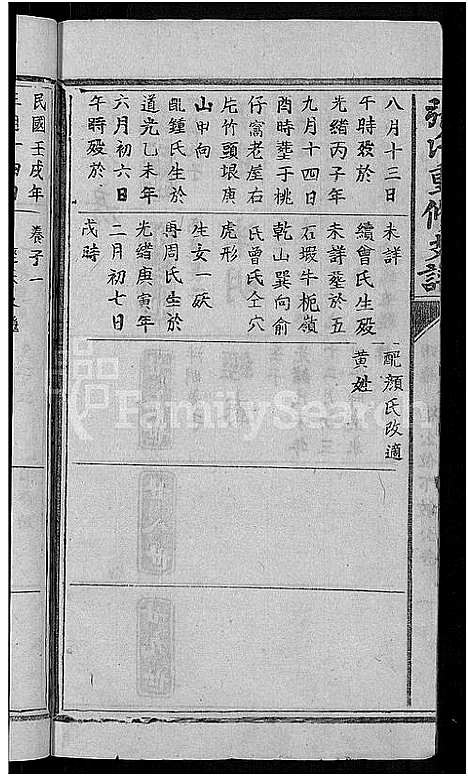 張氏重修支譜
八月十三日
午時歿於
光緒丙子年
九月十四日
酉時塟于桃
仔窩老崖右
片竹頭垠庚
山甲向
配鍾氏生於
道光乙未年
六月初六日
午時歿於
未詳
續曾氏生歿
未詳塟於五
石塅牛軛嶺
乾山巽向俞
氏曾氏仝穴
虎形
生女一妖
再周氏生於
光緒庚寅年
二月初七日
戌時
配顏氏改適
黃姓
民國壬戌年
養子一
FamilySearch